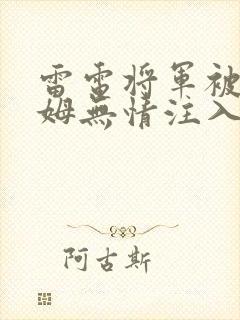 雷電将軍被
姆無情注入
阿古斯